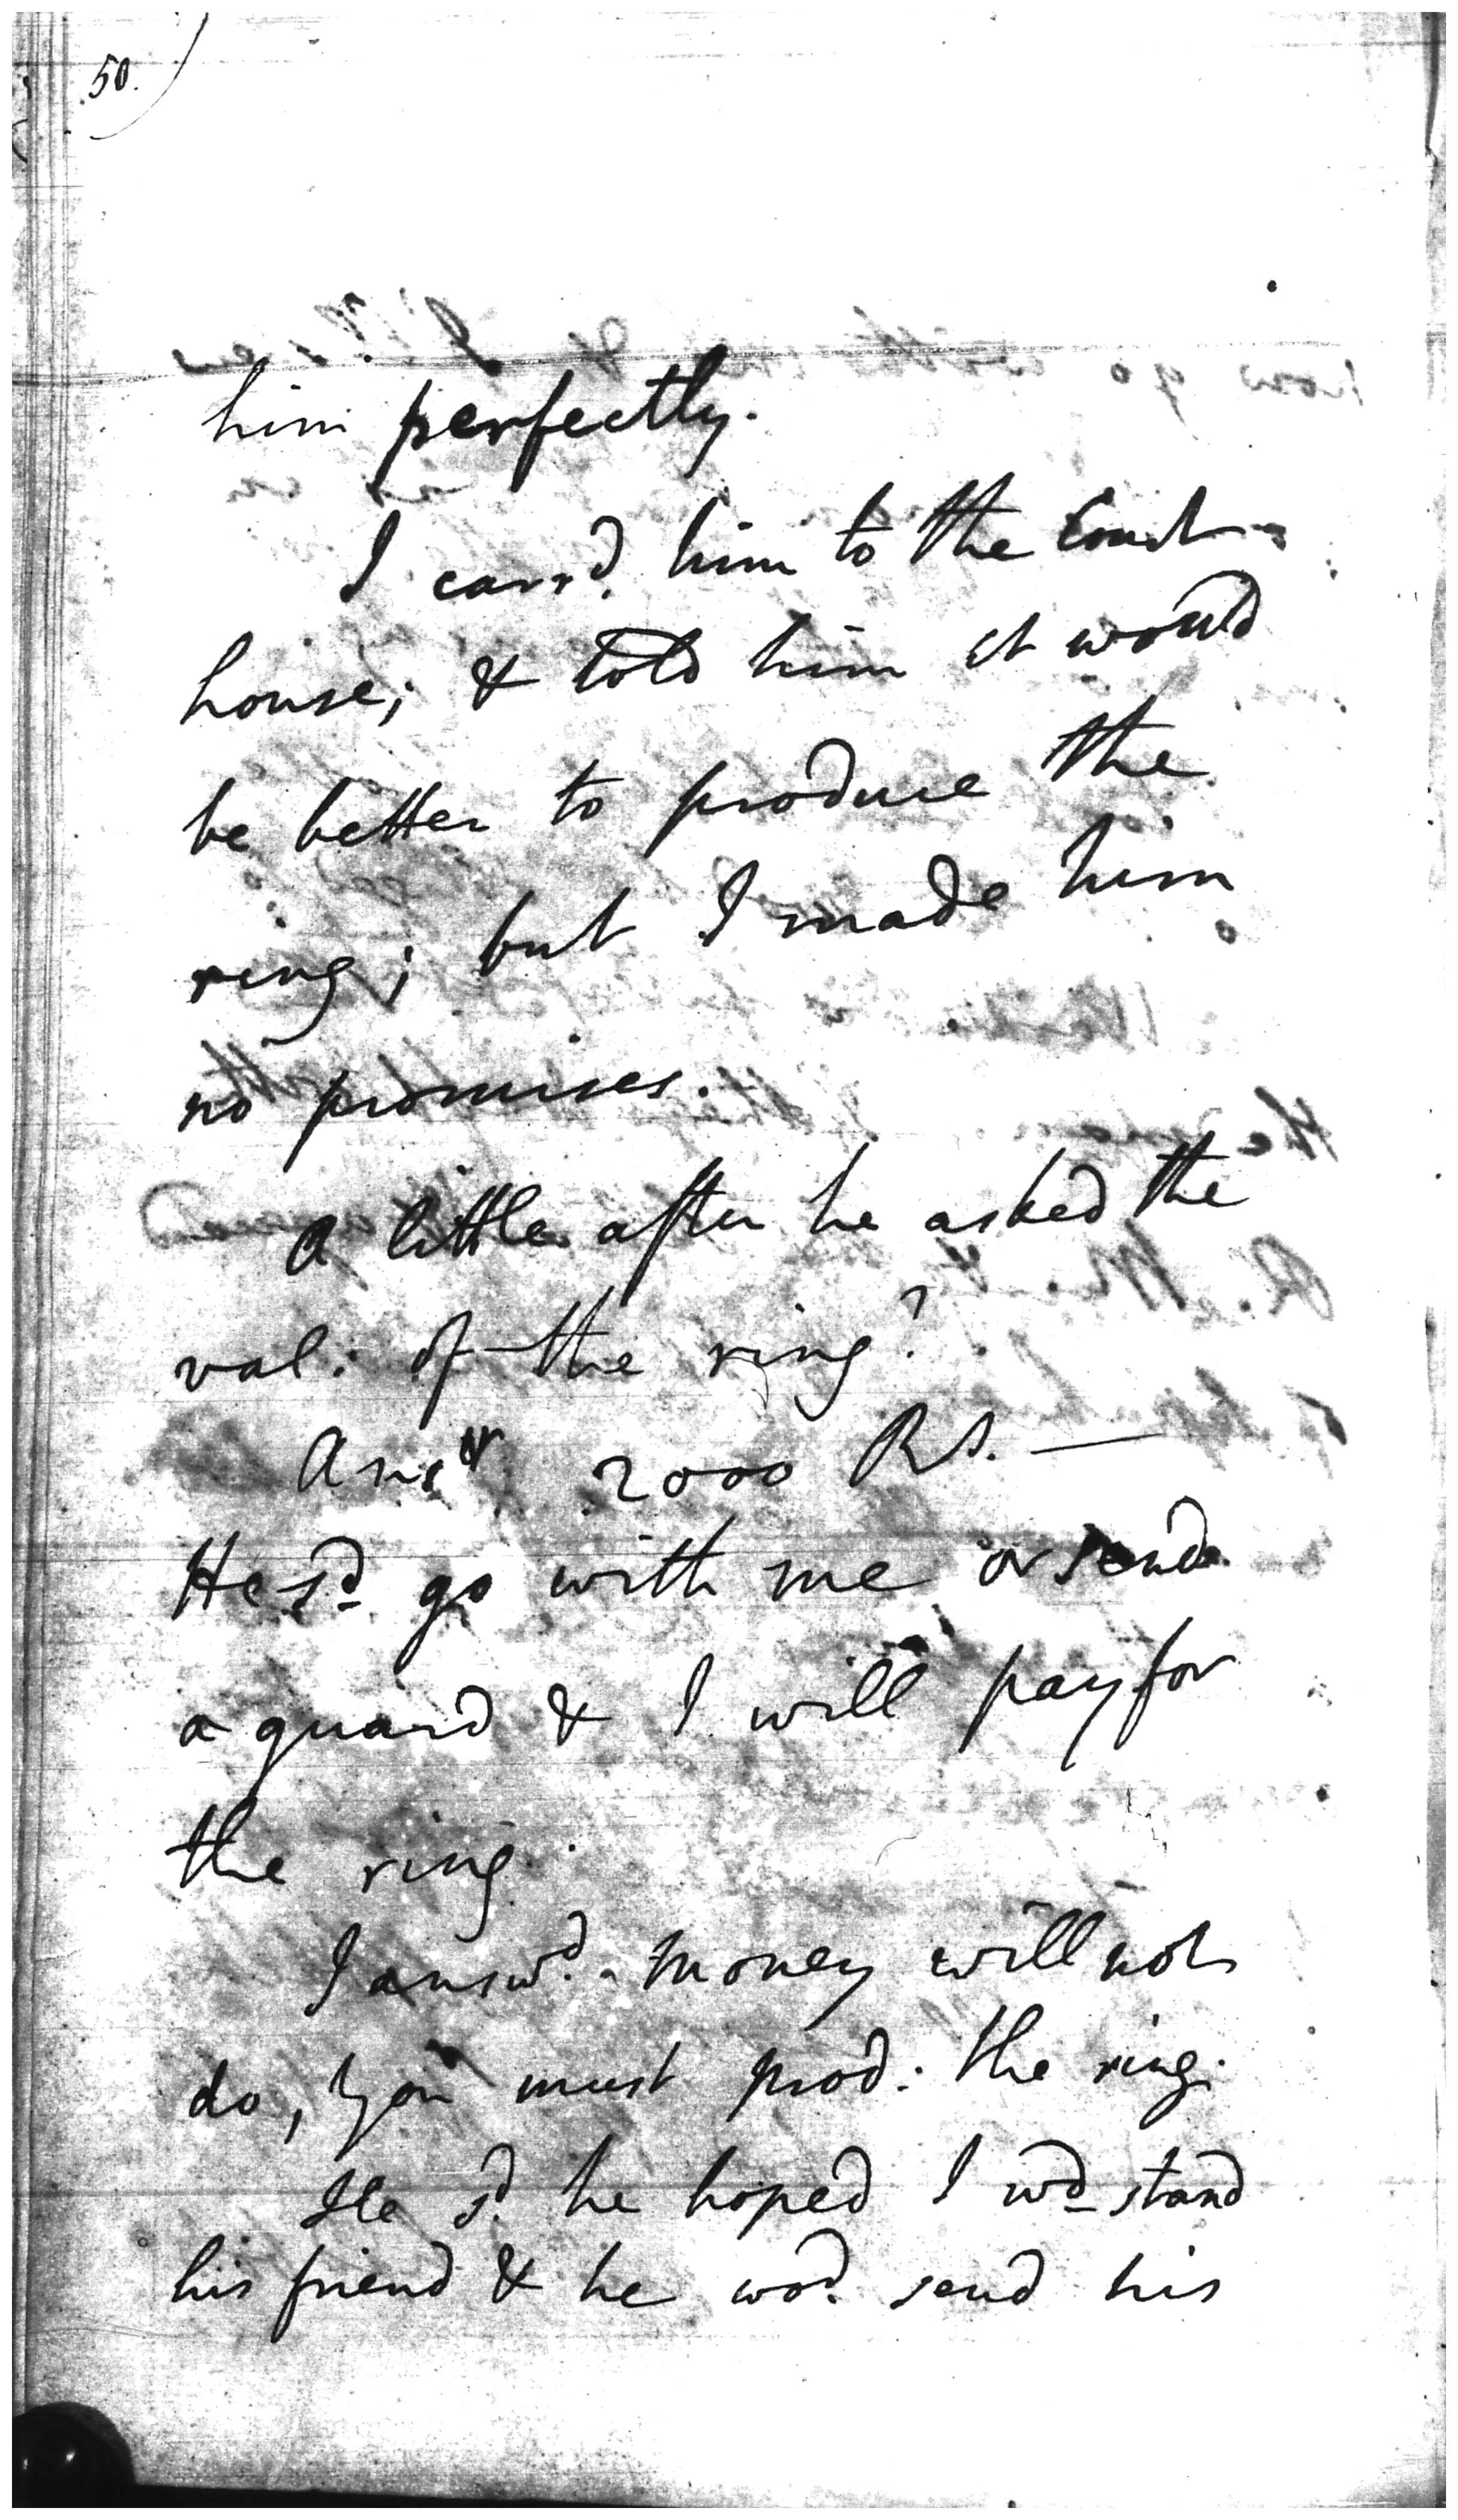 50.
him perfectly.
I carrd. him to the Court
house; & told him it would
be better to produce the
ring; but I made him
no promises.
A little after he asked the
val: of the ring?
Ansr 2000 Rs. —
He sd. go with me or send
a guard & I will pay for
the ring.
I answd. money will not
do, you must prod: the ring.
He sd. he hoped I wd. stand
his friend & he wod. send his